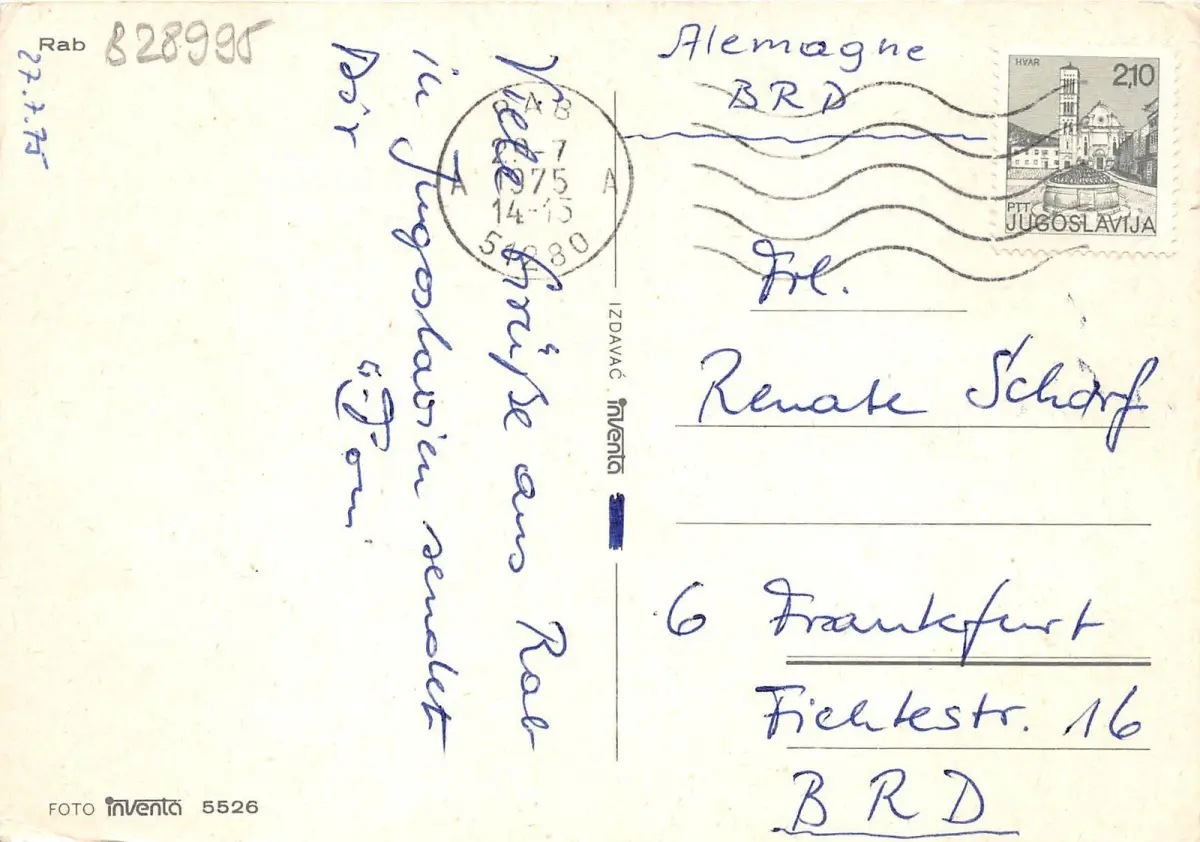 Rab
B28995
27.7.75
Viele Grüße aus Rab
in Jugoslawien sendet
Dir
Toni
RAB
-7
1975
14-15
51280
A A
Alemagne
BRD
HVAR
2,10
PTT
JUGOSLAVIJA
Frl.
Renate Schärf
6 Frankfurt
Fichtestr. 16
BRD
IZDAVAČ inventa
FOTO inventa 5526